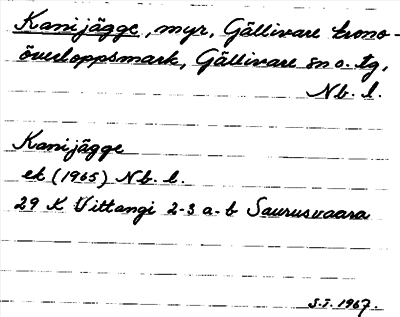 Kanijägge, myr, Gällivare krono-
överloppsmark, Gällivare sn o. tg,
Nb. l.
Kanijägge
ek (1965) Nb. l.
29 K Vittangi 2-3 a-b Saurusvaara
S.I. 1967.